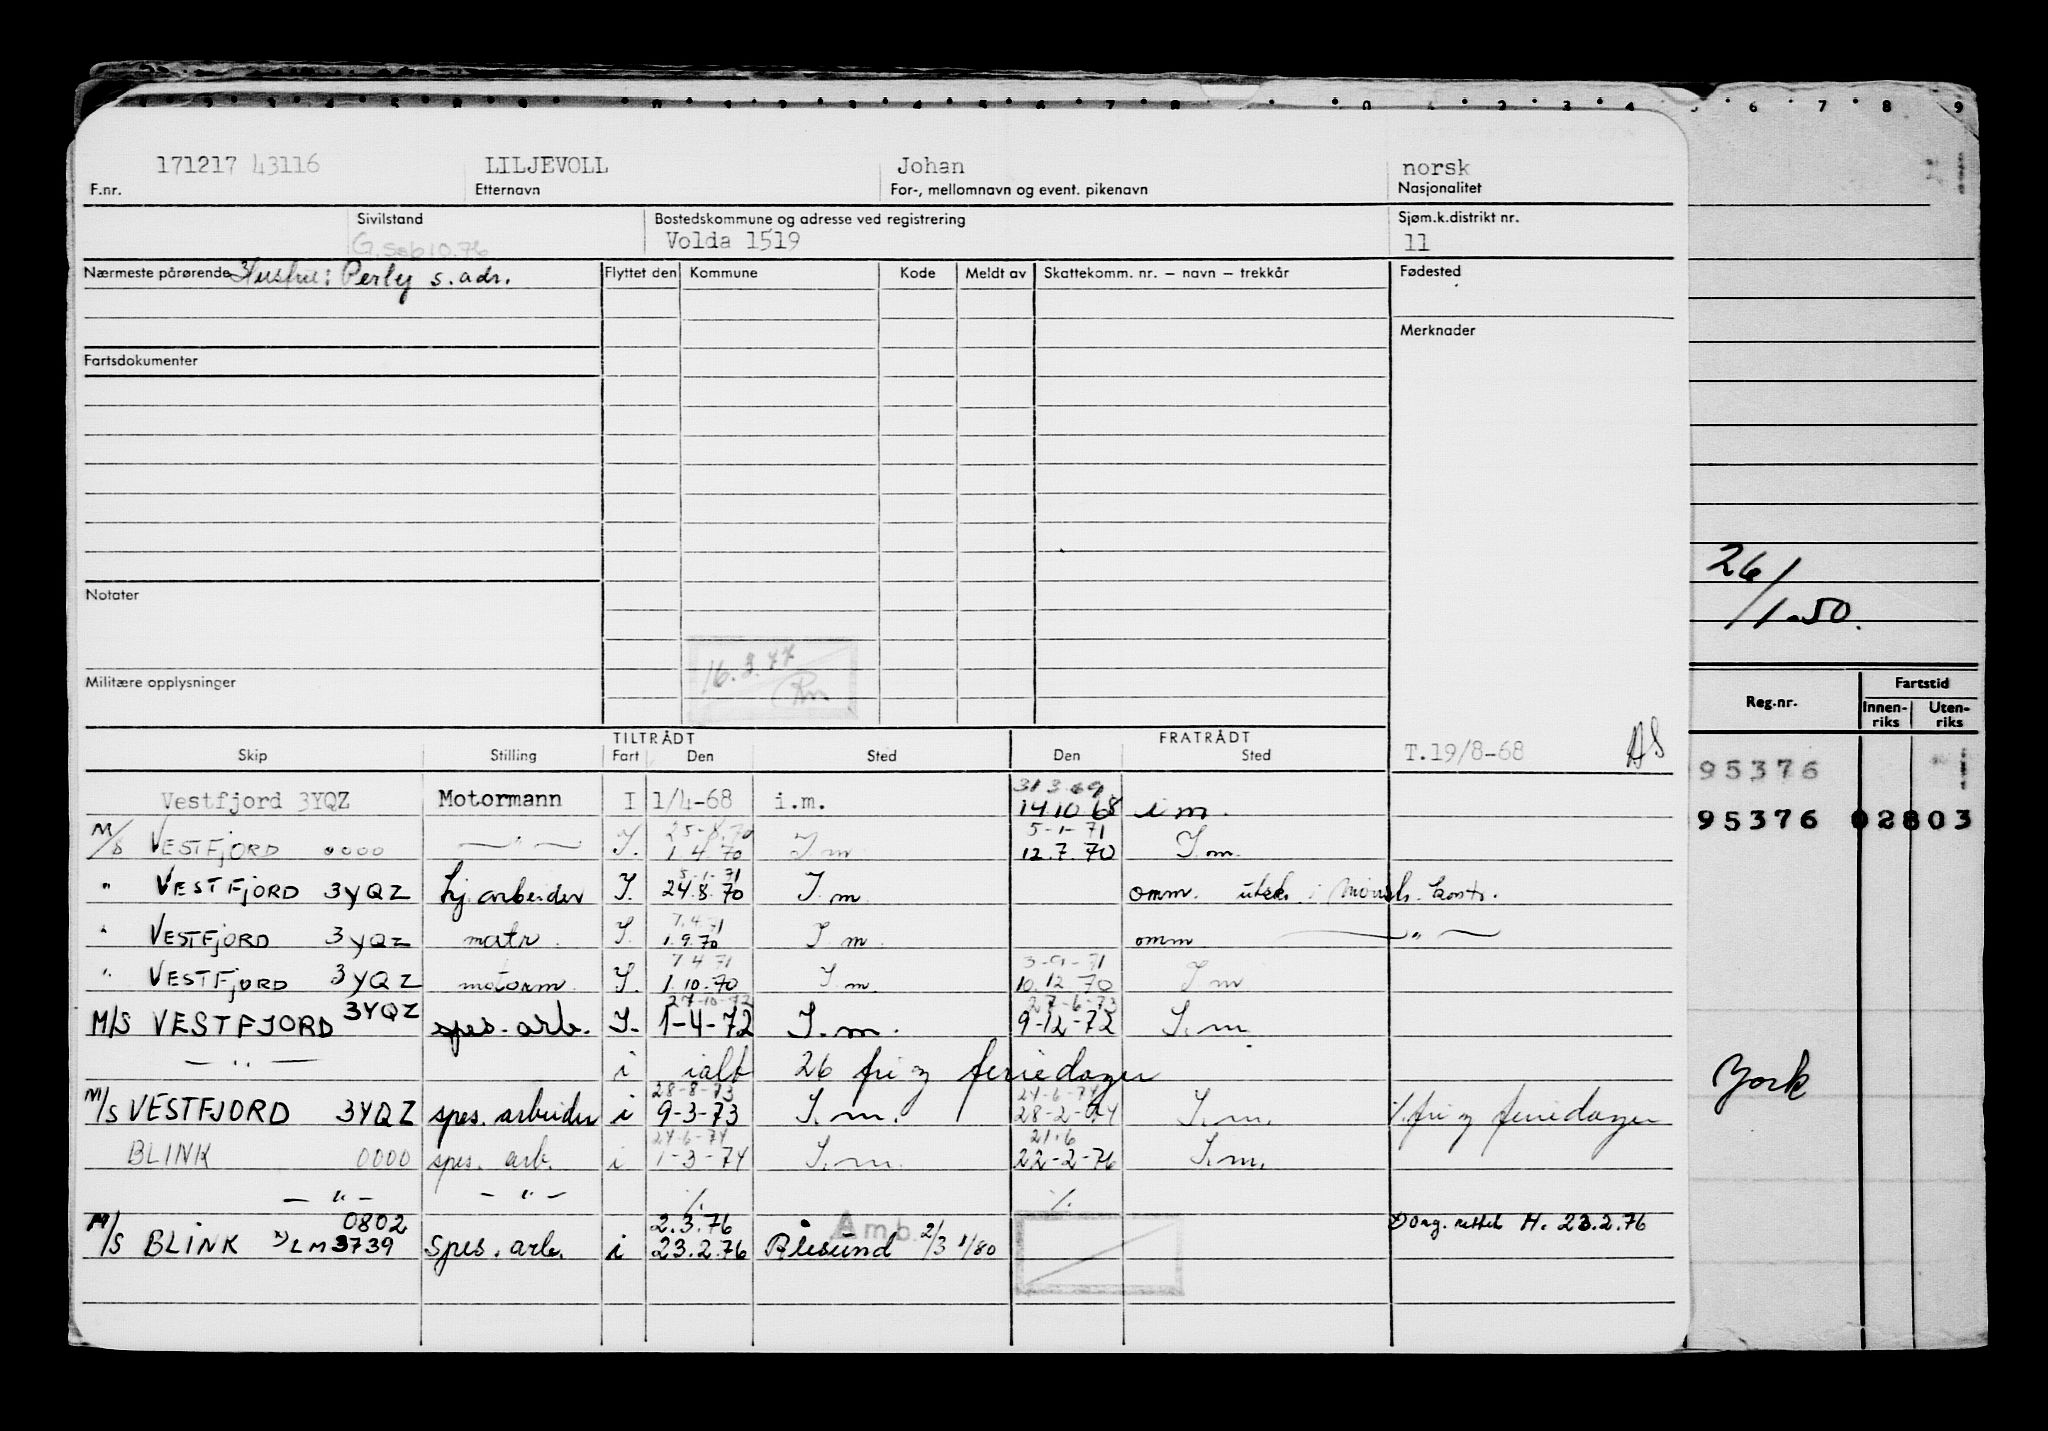 171217 43116 LILJEVOLL Johan norsk
F.nr. Etternavn For-, mellomnavn og event. pikenavn Nasjonalitet
Sivilstand Bostedskommune og adresse ved registrering Sjøm.k.distrikt nr.
Volda 1519 11
Nærmeste pårørende Hustru: Perly s. adr. Flyttet den Kommune Kode Meldt av Skattekomm. nr. – navn – trekkår Fødested
Merknader
Fartsdokumenter
26/1-50.
Notater
16.3.77
Militære opplysninger
Reg.nr. Fartstid
Innen-riks Uten-riks
TILTRÅDT FRATRÅDT
Skip Stilling Fart Den Sted Den Sted T.19/8-68 AS
95376
31 3 69
Vestfjord 3YQZ Motormann I 1/4-68 i.m. 14 10 68 i m.
95376 02803
25-8.70 5-1-71
M/S VESTFJORD 0000 — " — I. 1.4.70 I m 12.7.70 I m.
5-1-71
" VESTFJORD 3YQZ hj. arbeider I. 24.8.70 I. m omm. utsk. i mønstr. kontr.
7.4.71
" VESTFJORD 3YQZ matr. I. 1.9.70 I m. omm — " —
7 4 71 3-9-71
" VESTFJORD 3YQZ motorm I. 1.10.70 I. m. 10.12.70 I m
27-10-72 27-6-73
M/S VESTFJORD 3YQZ spes. arb. I. 1-4-72 I. m. 9-12-72 I. m
— " — i ialt 26 fri og feriedager
York
28-8-73 24-6-74
M/S VESTFJORD 3YQZ spes. arbeider i 9-3-73 I. m. 28-2-74 I. m. %. fri og feriedager
24-6-74 21.6
BLINK 0000 spes. arb. i 1-3-74 I. m. 22-2-76 I. m.
— " — — " — %. %.
0802 2.3.76 Amb. x) org. rettet H. 23.2.76
M/S BLINK x) LM 3739 spes. arb. i 23.2.76 Ålesund 2/3 1/80